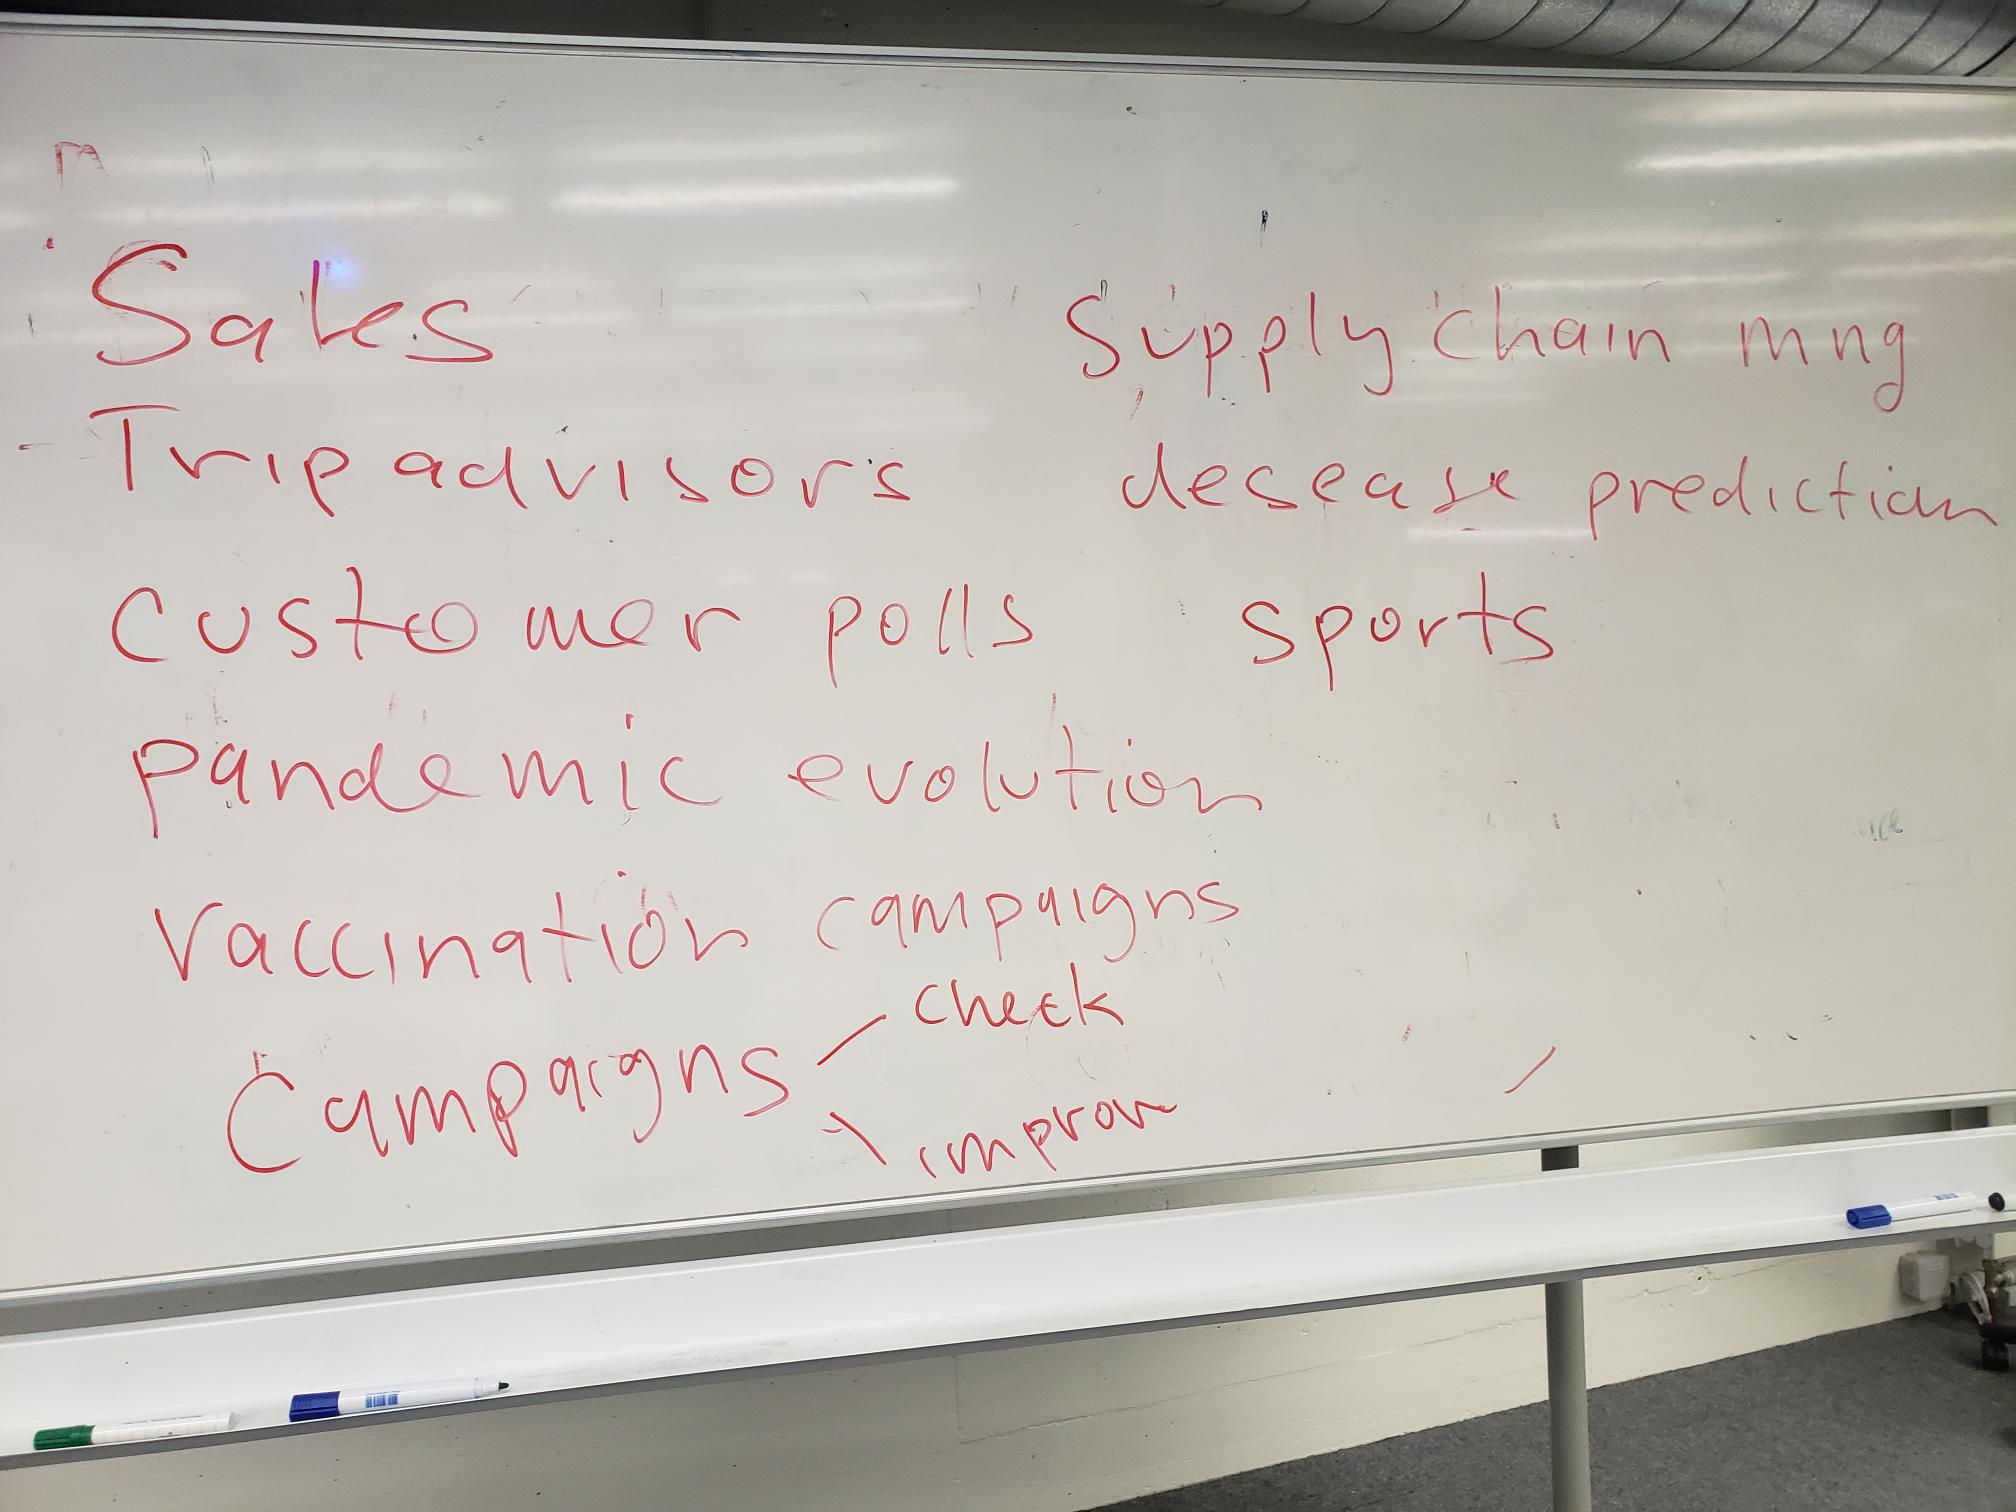 Sales
Tripadvisors
customer polls
pandemic evolution
vaccination campaigns
Campaigns
check
improve
Supply chain mng
desease prediction
sports